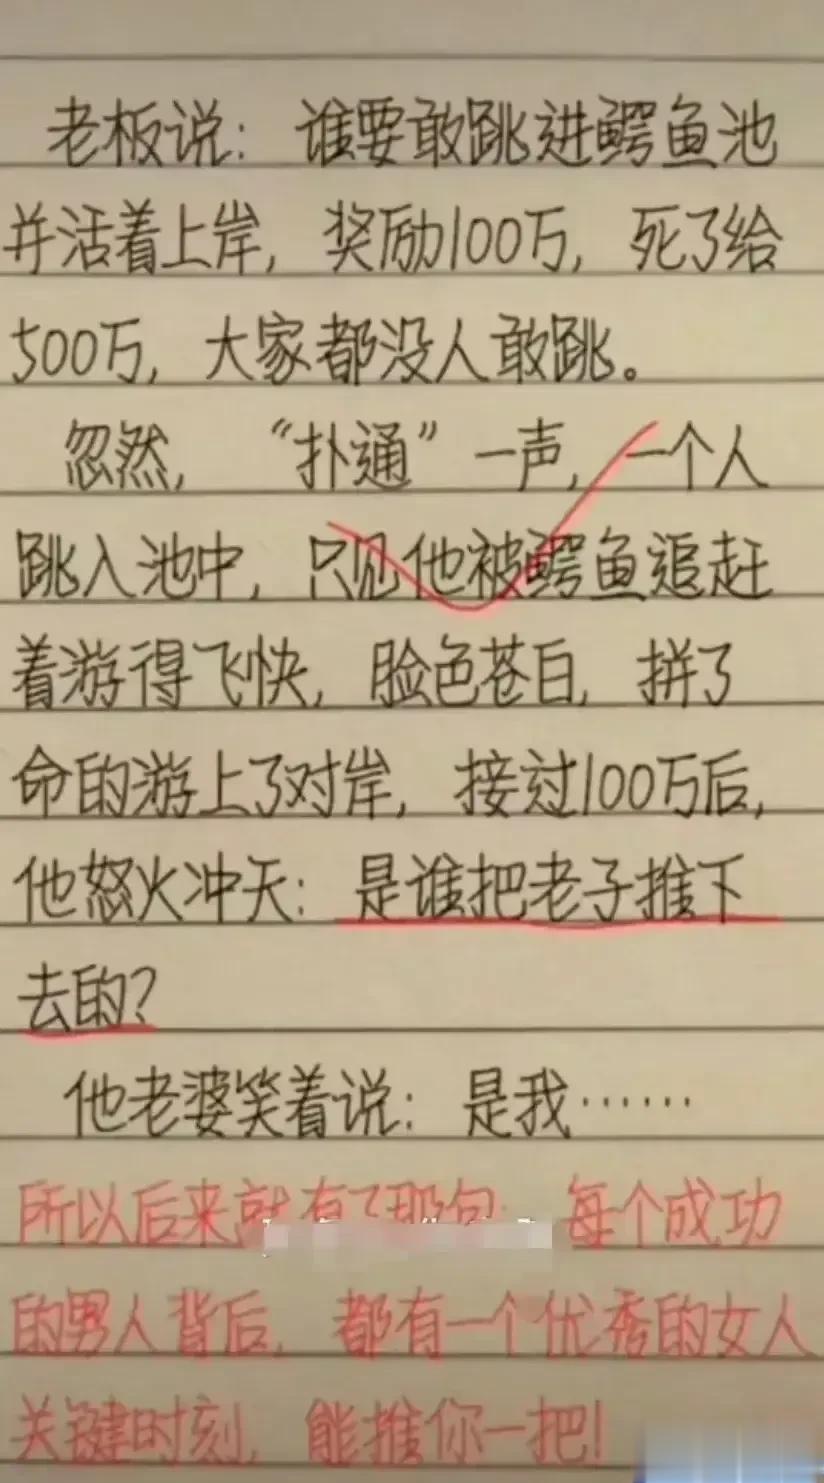 老板说：谁要敢跳进鳄鱼池
并活着上岸，奖励100万，死了给
500万，大家都没人敢跳。
忽然，“扑通”一声，一个人
跳入池中，只见他被鳄鱼追赶
着游得飞快，脸色苍白，拼了
命的游上了对岸，接过100万后，
他怒火冲天：是谁把老子推下
去的？
他老婆笑着说：是我……
所以后来就有了那句：每个成功
的男人背后，都有一个优秀的女人
关键时刻，能推你一把！